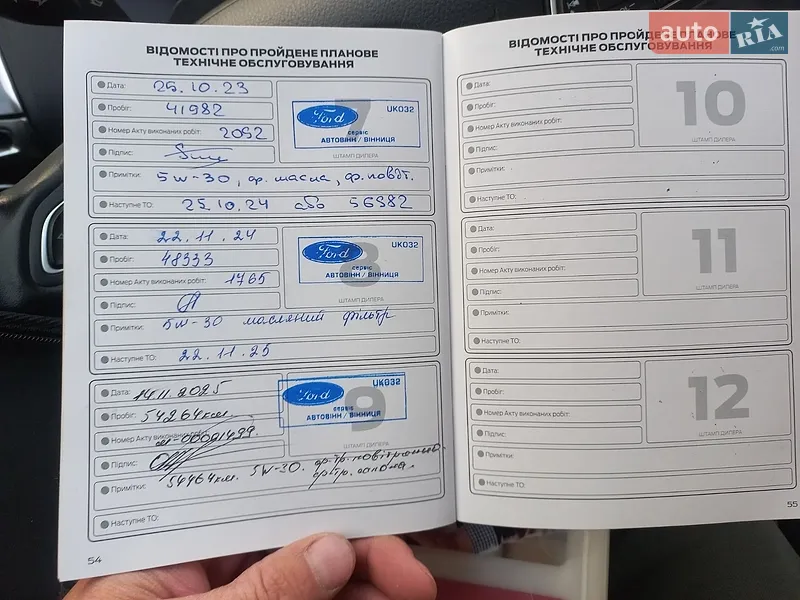 ВІДОМОСТІ ПРО ПРОЙДЕНЕ ПЛАНОВЕ
ТЕХНІЧНЕ ОБСЛУГОВУВАННЯ
Дата: 25.10.23
Пробіг: 41982
Номер Акту виконаних робіт: 2092
Підпис:
Примітки: 5w-30, ф. масла, ф. повіт.
Наступне ТО: 25.10.24 або 56982
7
Ford
UK032
сервіс
АВТОВІНН / ВІННИЦЯ
ШТАМП ДИЛЕРА
Дата: 22.11.24
Пробіг: 48333
Номер Акту виконаних робіт: 1765
Підпис:
Примітки: 5w-30 масляний фільтр
Наступне ТО: 22.11.25
8
Ford
UK032
сервіс
АВТОВІНН / ВІННИЦЯ
ШТАМП ДИЛЕРА
Дата: 14.11.2025
Пробіг: 54264км.
Номер Акту виконаних робіт: 00001499.
Підпис:
Примітки: 54464км. 5W-30. ф-тр. повітряный
ф-тр. салона.
Наступне ТО:
9
Ford
UK032
сервіс
АВТОВІНН / ВІННИЦЯ
ШТАМП ДИЛЕРА
54
ВІДОМОСТІ ПРО ПРОЙДЕНЕ ПЛАНОВЕ
ТЕХНІЧНЕ ОБСЛУГОВУВАННЯ
Дата:
Пробіг:
Номер Акту виконаних робіт:
Підпис:
Примітки:
Наступне ТО:
10
ШТАМП ДИЛЕРА
Дата:
Пробіг:
Номер Акту виконаних робіт:
Підпис:
Примітки:
Наступне ТО:
11
ШТАМП ДИЛЕРА
Дата:
Пробіг:
Номер Акту виконаних робіт:
Підпис:
Примітки:
Наступне ТО:
12
ШТАМП ДИЛЕРА
55
auto RIA .com